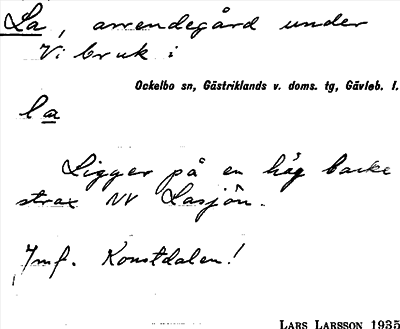 La, arrendegård under
Vi bruk i
Ockelbo sn, Gästriklands v. doms. tg, Gävleb. l.
la
Ligger på en hög backe
strax NV Lasjön.
Jmf. Konstdalen!
LARS LARSSON 1935